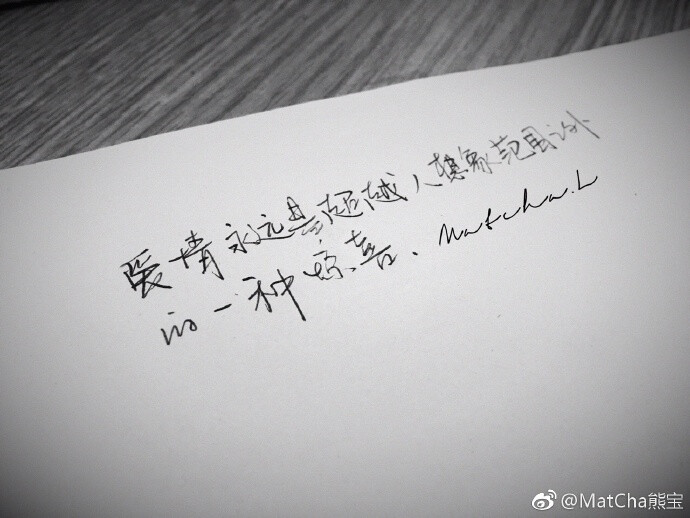 爱情永远是超越人想象范围之外
的一种惊喜. Matcha.L
@MatCha熊宝